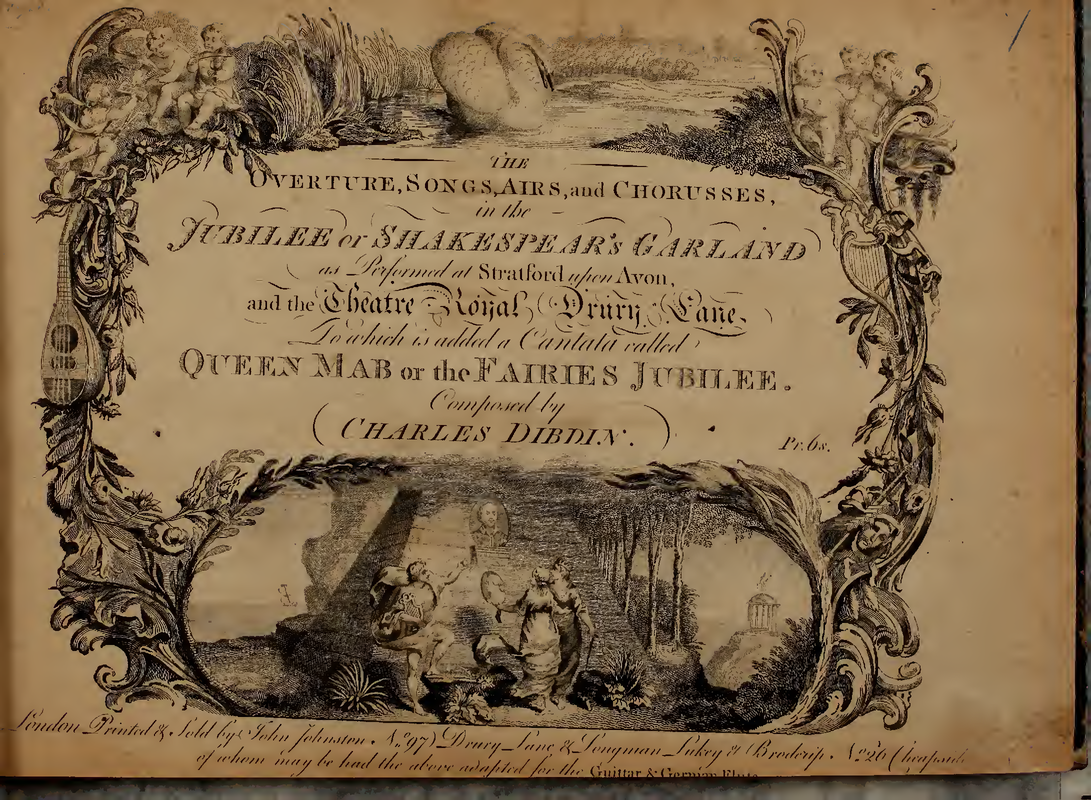 THE
OVERTURE, SONGS, AIRS, and CHORUSSES,
in the
JUBILEE or SHAKESPEAR's GARLAND
as Performed at Stratford upon Avon,
and the Theatre Royal Drury Lane.
To which is added a Cantata called
QUEEN MAB or the FAIRIES JUBILEE.
Composed by
(CHARLES DIBDIN.)
Pr. 6s.
London Printed & Sold by John Johnston No. 97 Drury Lane & Longman Lukey & Broderip No. 26 Cheapside
of whom may be had the above adapted for the Guittar & German Flute